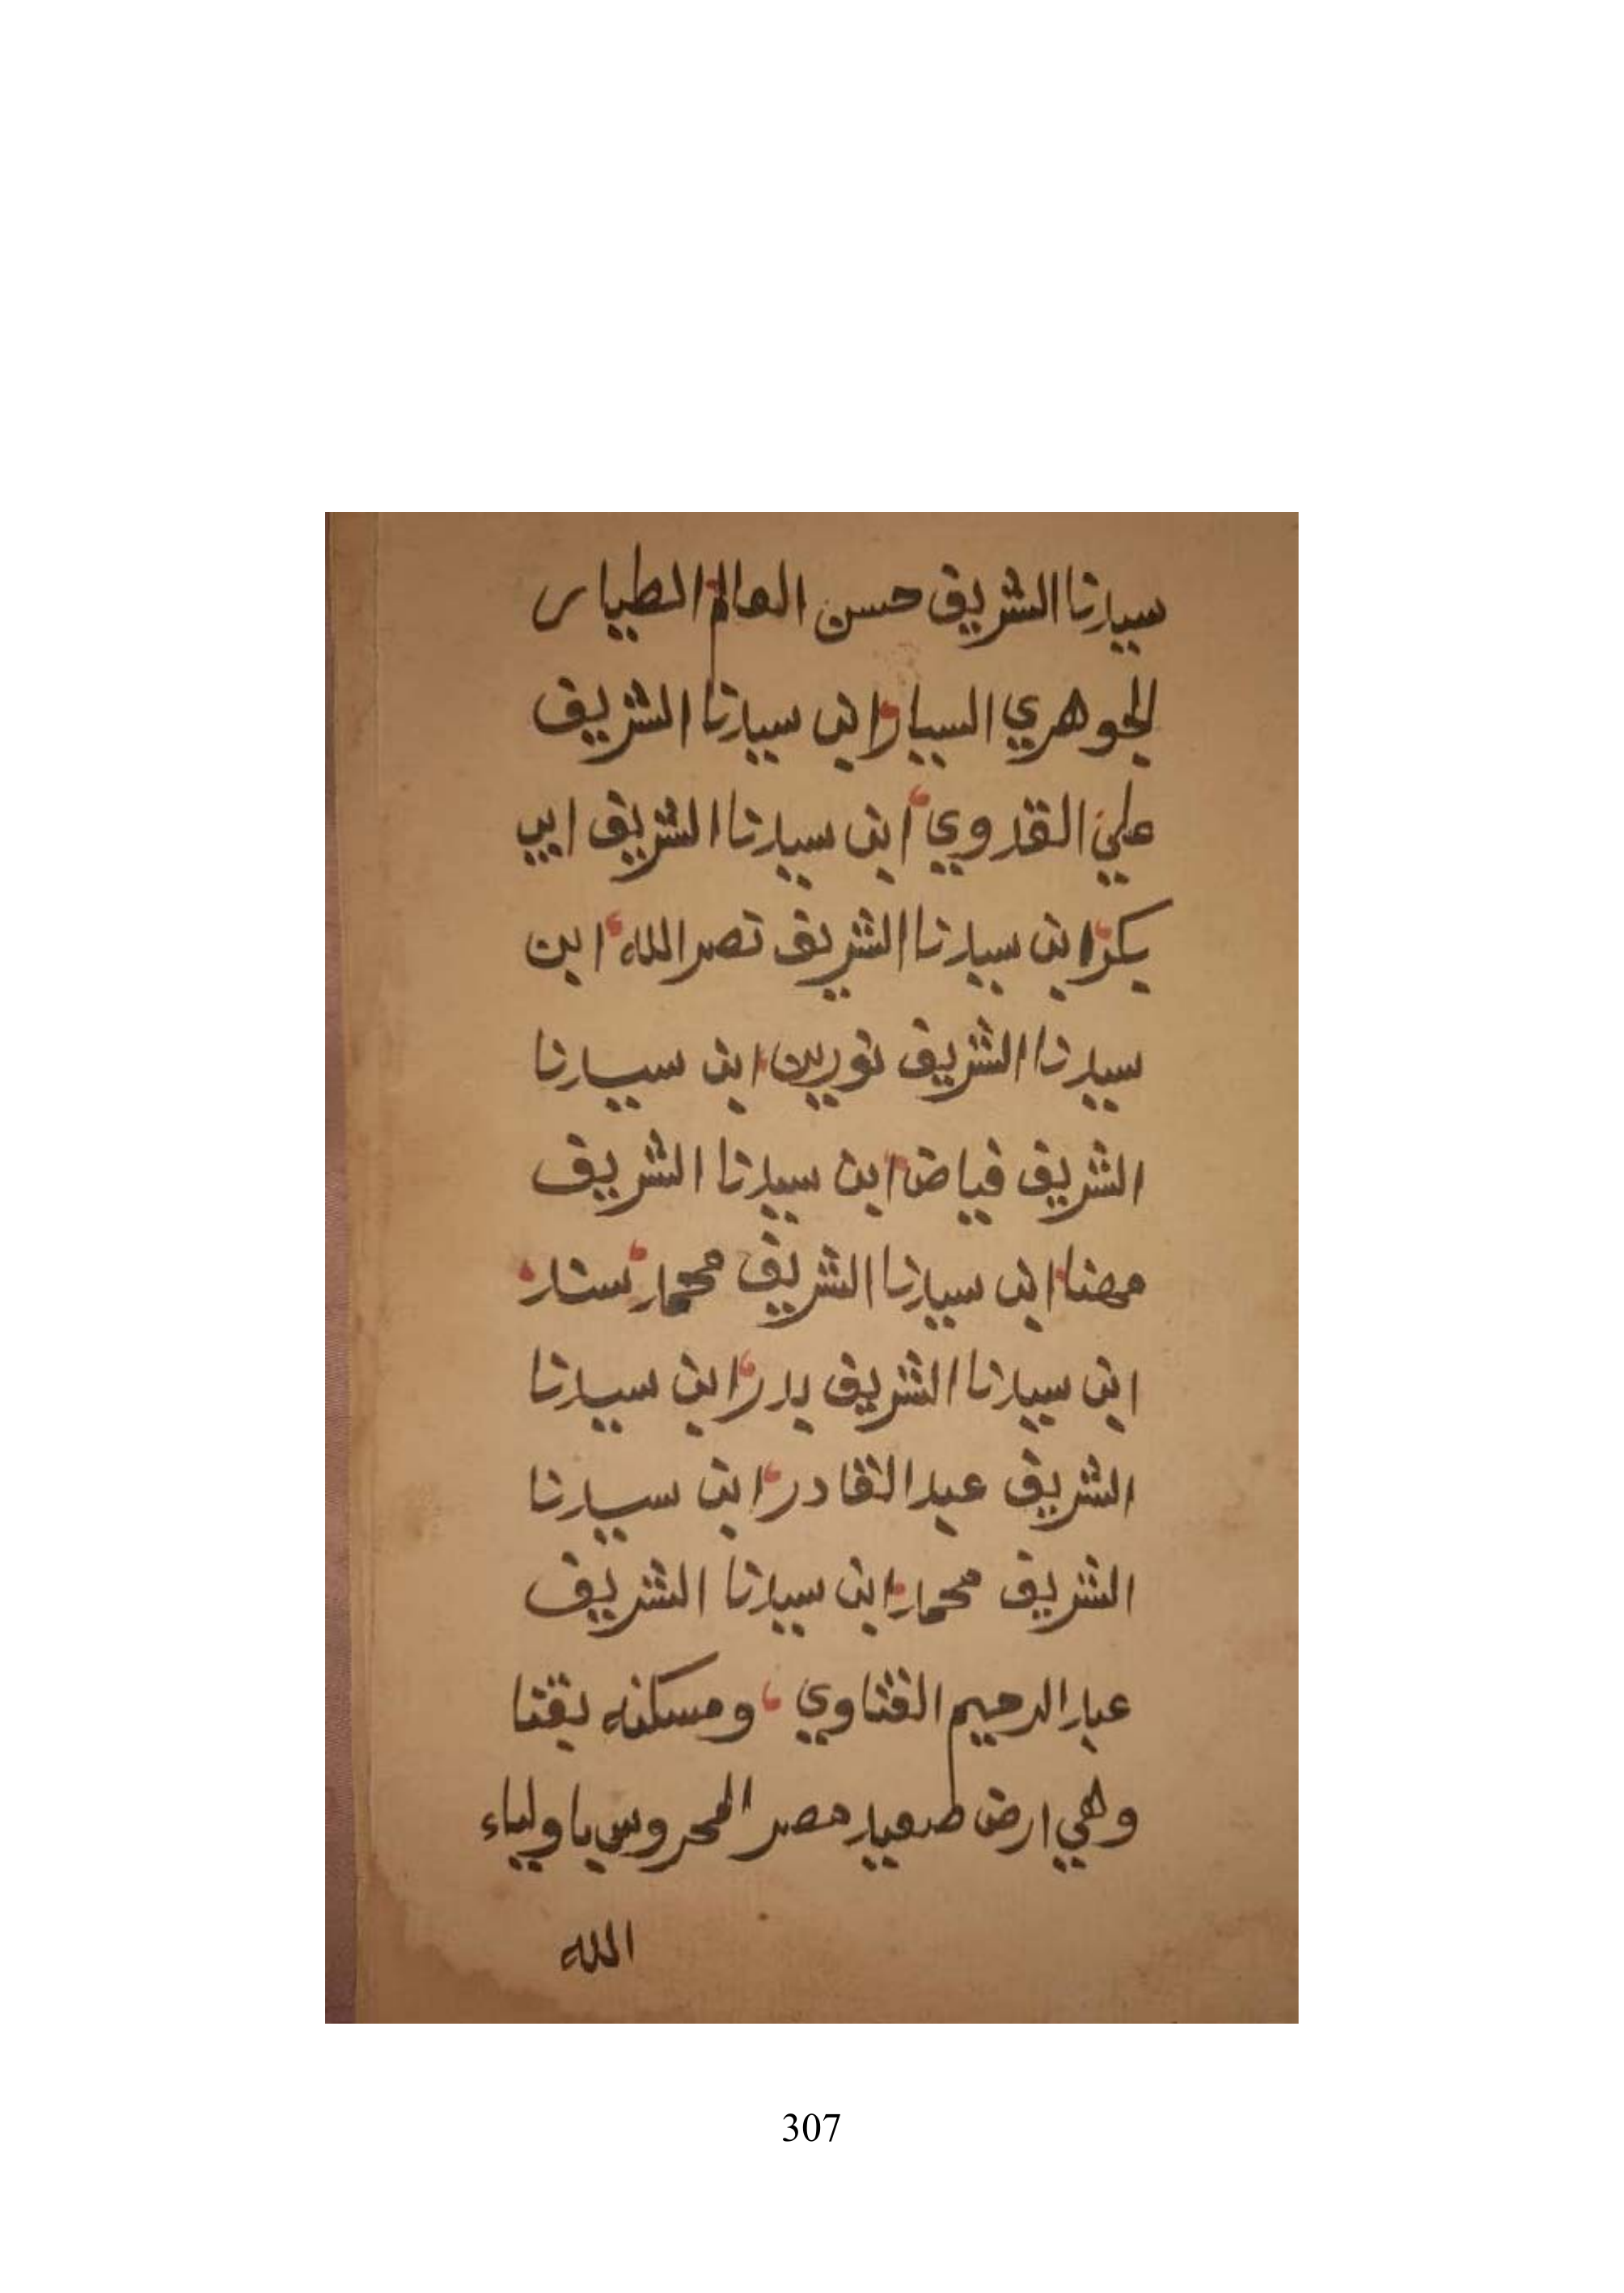 سيدنا الشريف حسن العالم الطيار
الجوهري السيار ابن سيدنا الشريف
علي القدوي ابن سيدنا الشريف ابي
بكر ابن سيدنا الشريف نصر الله ابن
سيدنا الشريف نورين ابن سيدنا
الشريف فياض ابن سيدنا الشريف
مهنا ابن سيدنا الشريف محمد ستار
ابن سيدنا الشريف بدر ابن سيدنا
الشريف عبد القادر ابن سيدنا
الشريف محمد ابن سيدنا الشريف
عبد الرحيم القناوي ومسكنه بقنا
وهي ارض صعيد مصر المحروس باولياء
الله
307